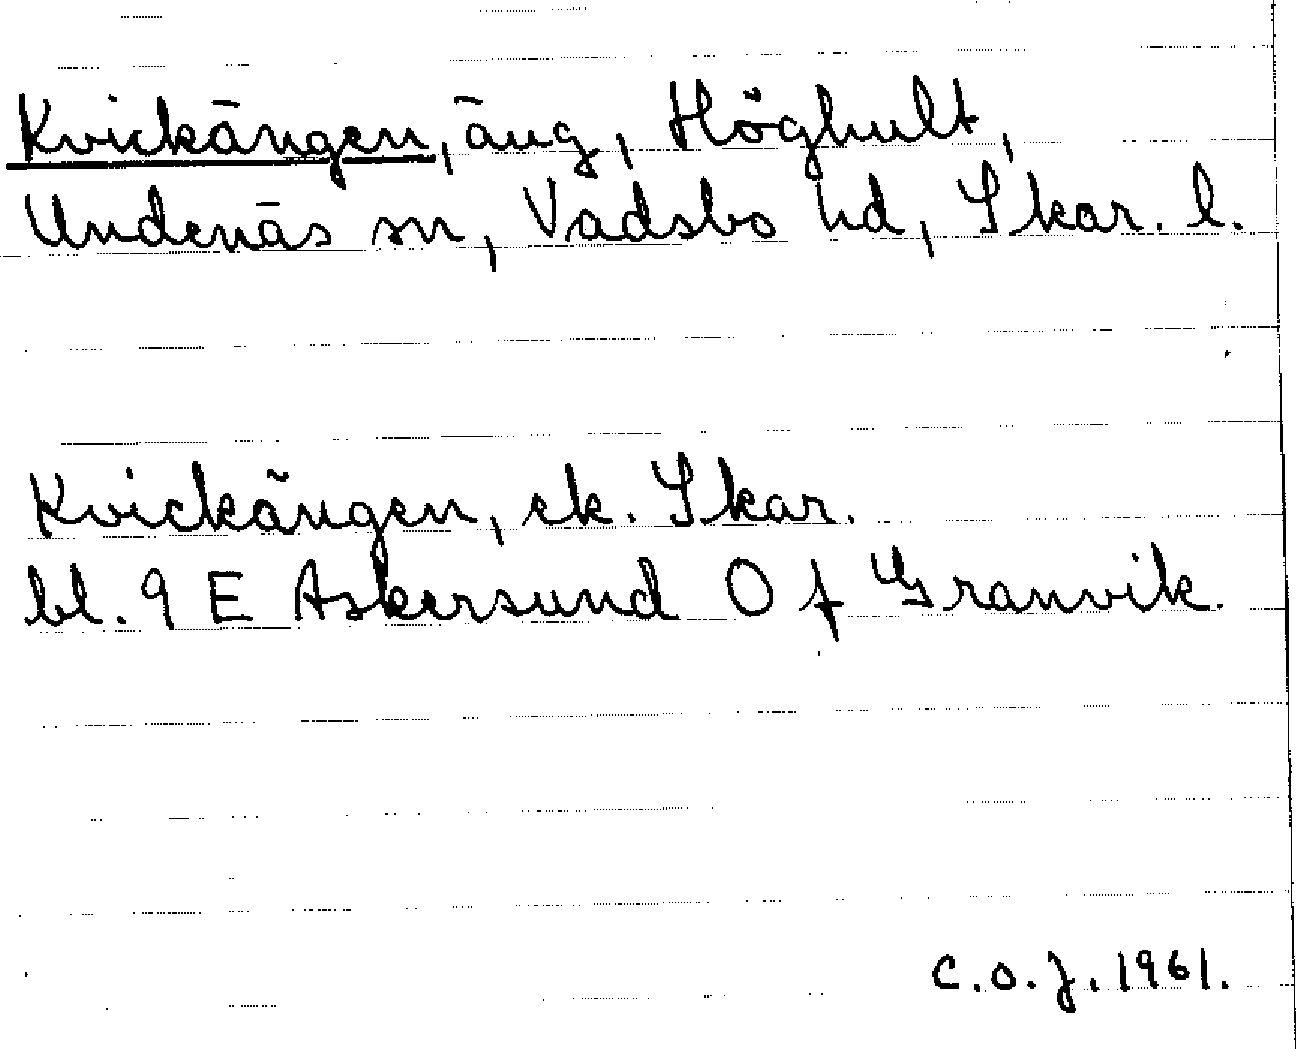 Kvickängen, äng, Höghult,
Undenäs sn, Vadsbo hd, Skar. l.
Kvickängen, ek. Skar.
bl. 9 E Askersund O f Granvik.
C.O.J. 1961.